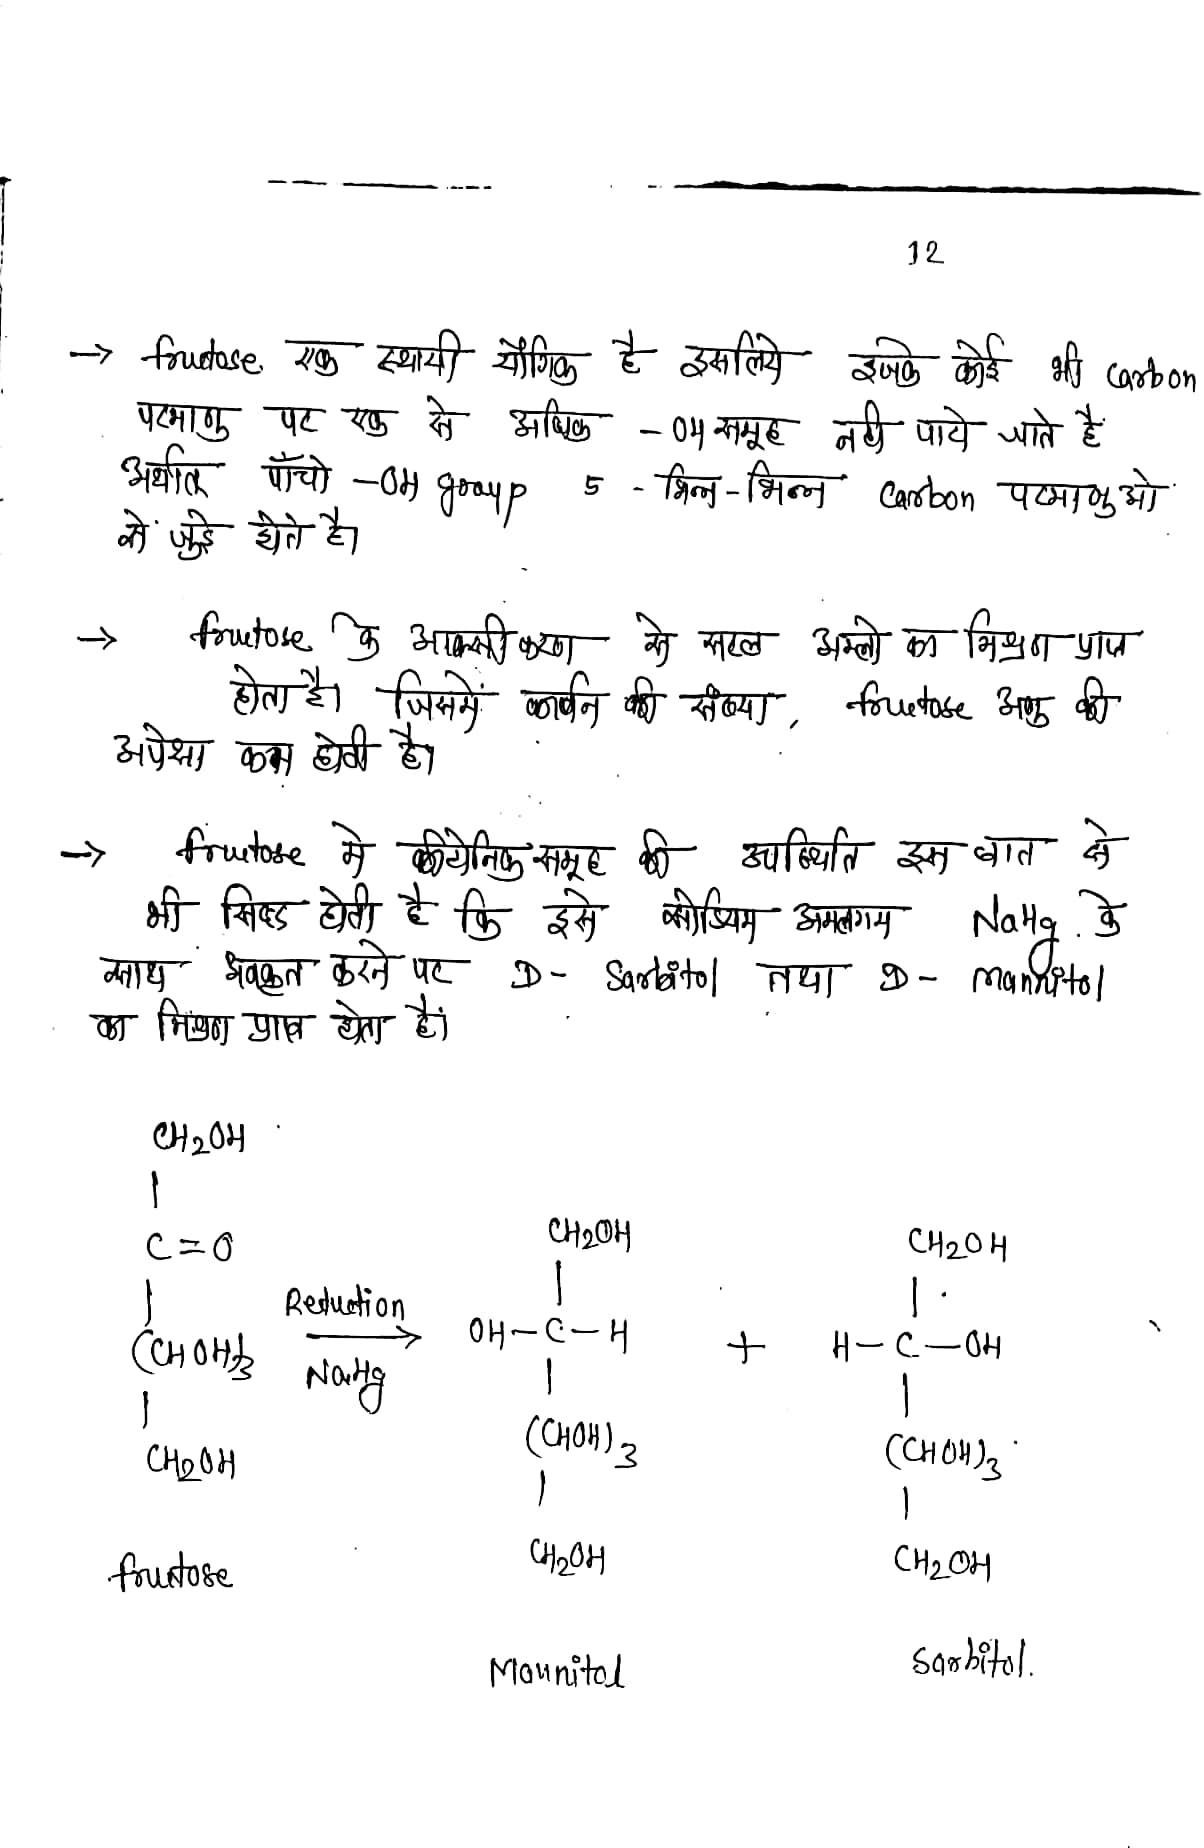 12
→ fructose एक स्थायी यौगिक है इसलिये इनके कोई भी carbon
परमाणु पर एक से अधिक -OH समूह नही पाये जाते हैं
अर्थात पाँचो -OH group 5 - भिन्न-भिन्न carbon परमाणुओ
से जुड़े होते है।
→ fructose के आक्सीकरण से सरल अम्लो का मिश्रण प्राप्त
होता है। जिसमें कार्बन की संख्या, fructose अणु की
अपेक्षा कम होती है।
→ fructose मे कीटोनिक समूह की उपस्थिति इस बात से
भी सिद्ध होती है कि इसे सोडियम अमलगम NaHg के
साथ अवकृत करने पर D- Sarbitol तथा D- Mannitol
का मिश्रण प्राप्त होता है।
CH2OH
|
C=O
|
(CHOH)3
|
CH2OH
fructose
Reduction
→
NaHg
CH2OH
|
OH-C-H
|
(CHOH)3
|
CH2OH
Mannitol
+
CH2OH
|
H-C-OH
|
(CHOH)3
|
CH2OH
Sarbitol.